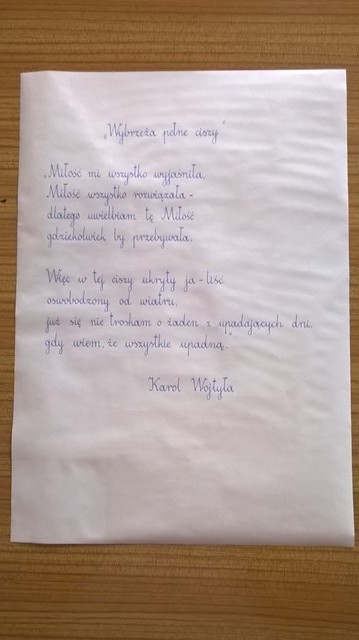 „Wybrzeża pełne ciszy”
„Miłość mi wszystko wyjaśniła,
Miłość wszystko rozwiązała -
dlatego uwielbiam tę Miłość
gdziekolwiek by przebywała.
Więc w tej ciszy ukryty ja - liść
oswobodzony od wiatru,
już się nie troskam o żaden z upadających dni,
gdy wiem, że wszystkie upadną.”
Karol Wojtyła